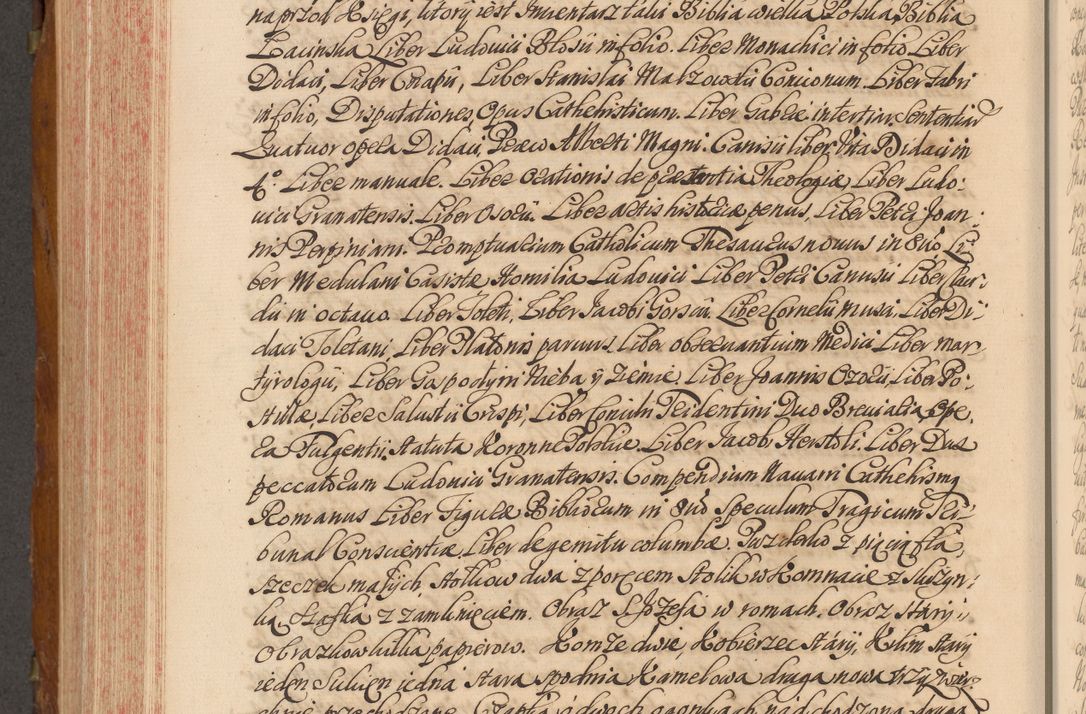 naprzod Księgi, ktory iest Inwentarz taki Biblia wielka Polska, Biblia
Łacinska Liber Ludovici Blosii in folio. Liber Monachici in folio Liber
Didaci, Liber Cnapii, Liber Stanislai Makzowskii Concionum. Liber Fabri
in folio, Disputationes, Opus Cathehisticum. Liber Gablie in tertiar: Sententiar
Quatuor opera Didaci, Peæco Alberti Magni. Canisii liber, Vita Didaci in
4º. Liber manuale. Liber orationis de præstantia Theologiæ, Liber Ludo:
vici Granatensis. Liber Osorii. Liber artis historiæ penus, Liber Petri Joan:
nis Perpiniani. Promptuarium Catholicum Thesaurus novus in 8vo Li:
ber Medulani Casistæ Homilia Ludovici Liber Petri Canusii Liber Car:
dii in octavo. Liber Toleti, Liber Jacobi Gorscii. Liber Cornelii musi. Liber Di:
daci Toletani, Liber Platonis parvus Liber observantium Medici Liber mar:
tyrologii, Liber Gospodyni Nieba y ziemie, Liber Joannis Ozorii, Liber Po:
stillæ, Liber Salustii Crispi, Liber Concilii Tridentini Duo Breviaria Ope:
ra Fulgentii. Statuta Koronne Polskie. Liber Jacobi Herstoli. Liber Dux
peccatorum Ludovici Granatensis. Compendium Navarri Cathehismq
Romanus Liber Figuræ Bibliorum in 8vo Speculum Tragicum Tri:
bunal Conscientiæ, Liber de gemitu columbæ. Puzderko z pięcią fla:
szeczek małych, stołkow dwa z poręcem stolik w Komnacie z służyn:
ką szafka z zamknięciem. Obraz S. Jozefa w romach. Obraz stary;
Obrazkow kilka papierow. Komże dwie, Kobierzec stáry, Kilim stary
ieden Sukien iedna stara spodnia Kamelowa druga nowa trzy zwier: